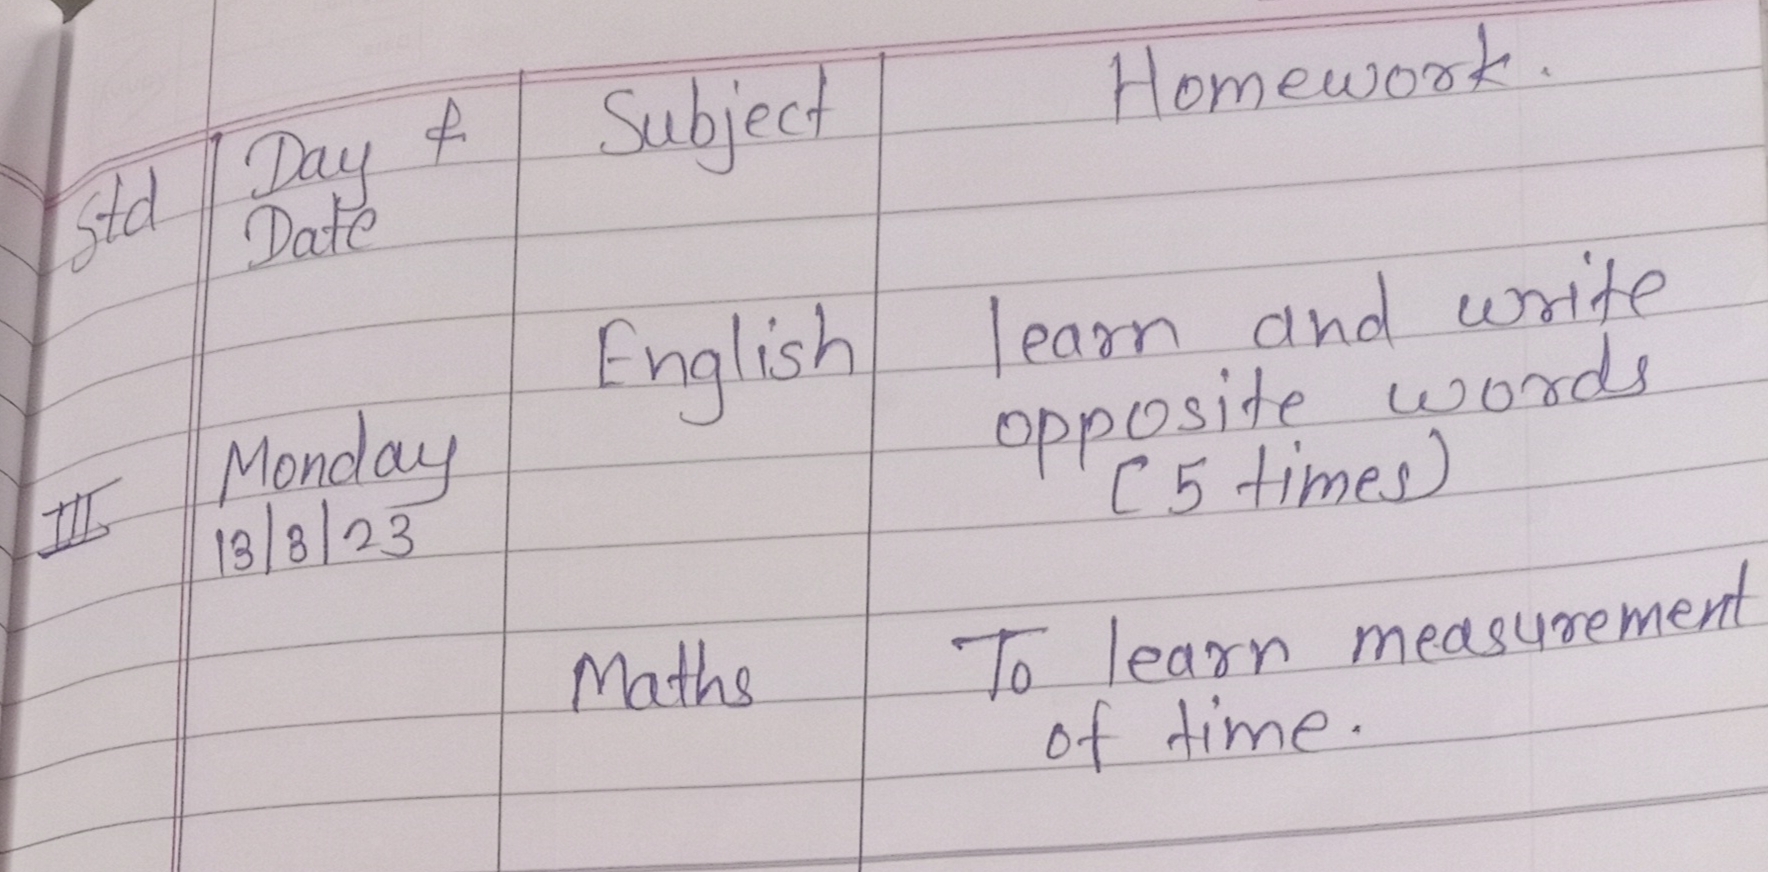 Std Day & Subject Homework.
Date
English learn and write
opposite words
(5 times)
III Monday
13/3/23
Maths To learn measurement
of time.